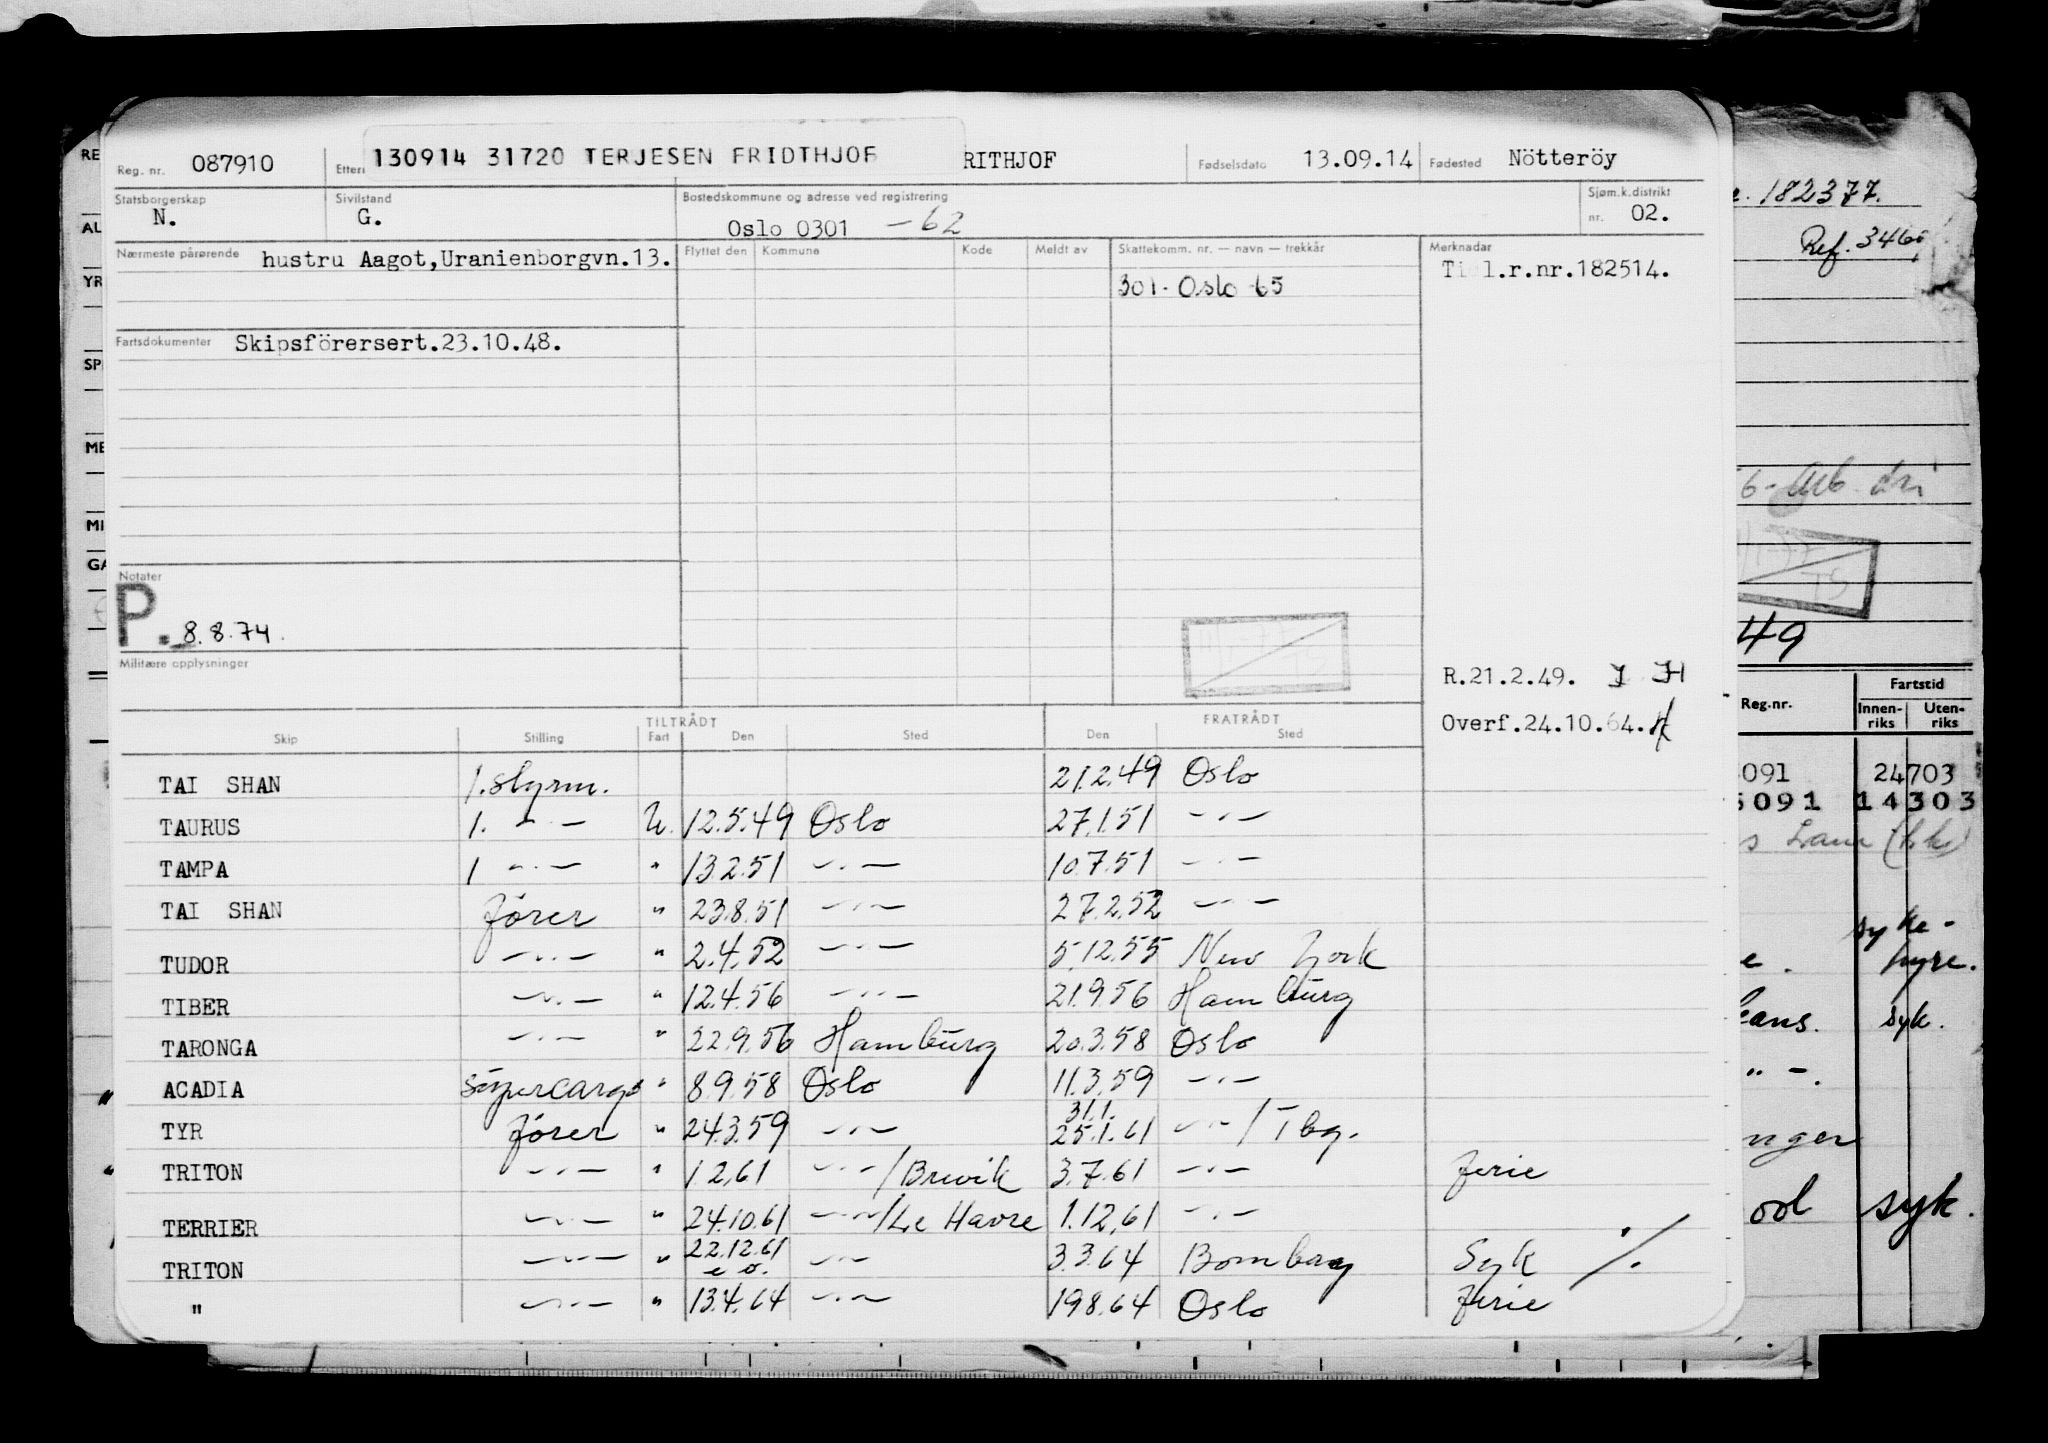 Reg. nr. 087910 Ettern 130914 31720 TERJESEN FRIDTHJOF RITHJOF Fødselsdato 13.09.14 Fødested Nötteröy
Statsborgerskap N. Sivilstand G. Bostedskommune og adresse ved registrering Oslo 0301 -62 Sjøm.k.distrikt nr. 02.
Nærmeste pårørende hustru Aagot,Uranienborgvn.13. Flyttet den Kommune Kode Meldt av Skattekomm. nr. — navn — trekkår Merknader
301. Oslo 65 l.r.nr.182514.
Fartsdokumenter Skipsförersert.23.10.48.
Notater
P. 8.8.74.
Militære opplysninger
R.21.2.49. J H
Overf.24.10.64.
TILTRÅDT FRATRÅDT
Skip Stilling Fart Den Sted Den Sted
TAI SHAN 1.styrm. 21.2.49 Oslo
TAURUS 1. -"- U. 12.5.49 Oslo 27.1.51 -"-
TAMPA 1 -"- " 13.2.51 -"- 10.7.51 -"-
TAI SHAN förer " 23.8.51 -"- 27.2.52 -"-
TUDOR -"- " 2.4.52 -"- 5.12.55 New York
TIBER -"- " 12.4.56 -"- 21.9.56 Hamburg
TARONGA -"- " 22.9.56 Hamburg 20.3.58 Oslo
ACADIA supercargo " 8.9.58 Oslo 11.3.59 -"-
TYR förer " 24.3.59 -"- 31.1. 25.1.61 -"-/Tbg.
TRITON -"- " 1.2.61 -"-/Brevik 3.7.61 -"- ferie
TERRIER -"- " 24.10.61 -"-/Le Havre 1.12.61 -"-
TRITON -"- " 22.12.61 e.o. -"- 3.3.64 Bombay Syk ./.
" -"- " 13.4.64 -"- 19.8.64 Oslo ferie
RE
AU
YR
SP
ME
MI
GA
182377.
Ref. 346
49
Reg.nr. Fartstid
Innen-riks Uten-riks
091 24703
5091 14303
syke-
hyre.
syk.
syk.